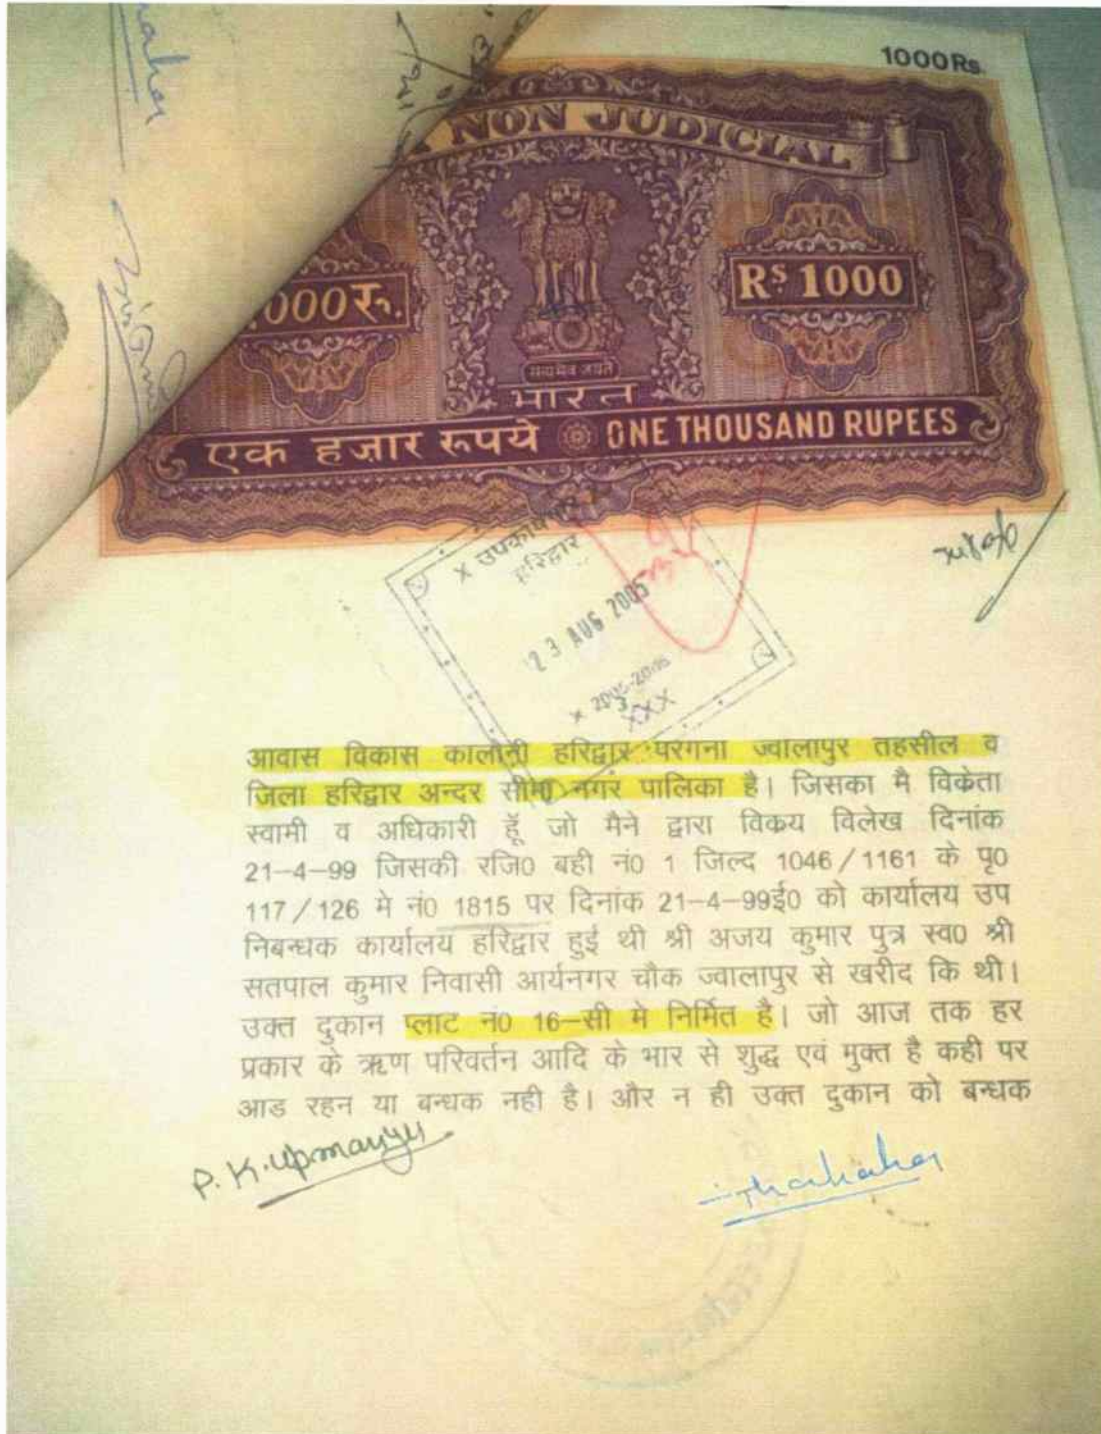 1000Rs.
NON JUDICIAL
000रु.
Rs 1000
सत्यमेव जयते
भारत
एक हज़ार रूपये ONE THOUSAND RUPEES
x
हरिद्वार
23 AUG 2005
x 2005-2006
XXX
आवास विकास कालोनी हरिद्वार परगना ज्वालापुर तहसील व
जिला हरिद्वार अन्दर सीमा नगर पालिका है। जिसका मै विकेता
स्वामी व अधिकारी हूँ जो मैने द्वारा विकय विलेख दिनांक
21-4-99 जिसकी रजि0 बही नं0 1 जिल्द 1046/1161 के पृ0
117/126 मे नं0 1815 पर दिनांक 21-4-99ई0 को कार्यालय उप
निबन्धक कार्यालय हरिद्वार हुई थी श्री अजय कुमार पुत्र स्व0 श्री
सतपाल कुमार निवासी आर्यनगर चौक ज्वालापुर से खरीद कि थी।
उक्त दुकान प्लाट नं0 16-सी मे निर्मित है। जो आज तक हर
प्रकार के ऋण परिवर्तन आदि के भार से शुद्ध एवं मुक्त है कही पर
आड रहन या बन्धक नही है। और न ही उक्त दुकान को बन्धक
P. K. Upmanyu